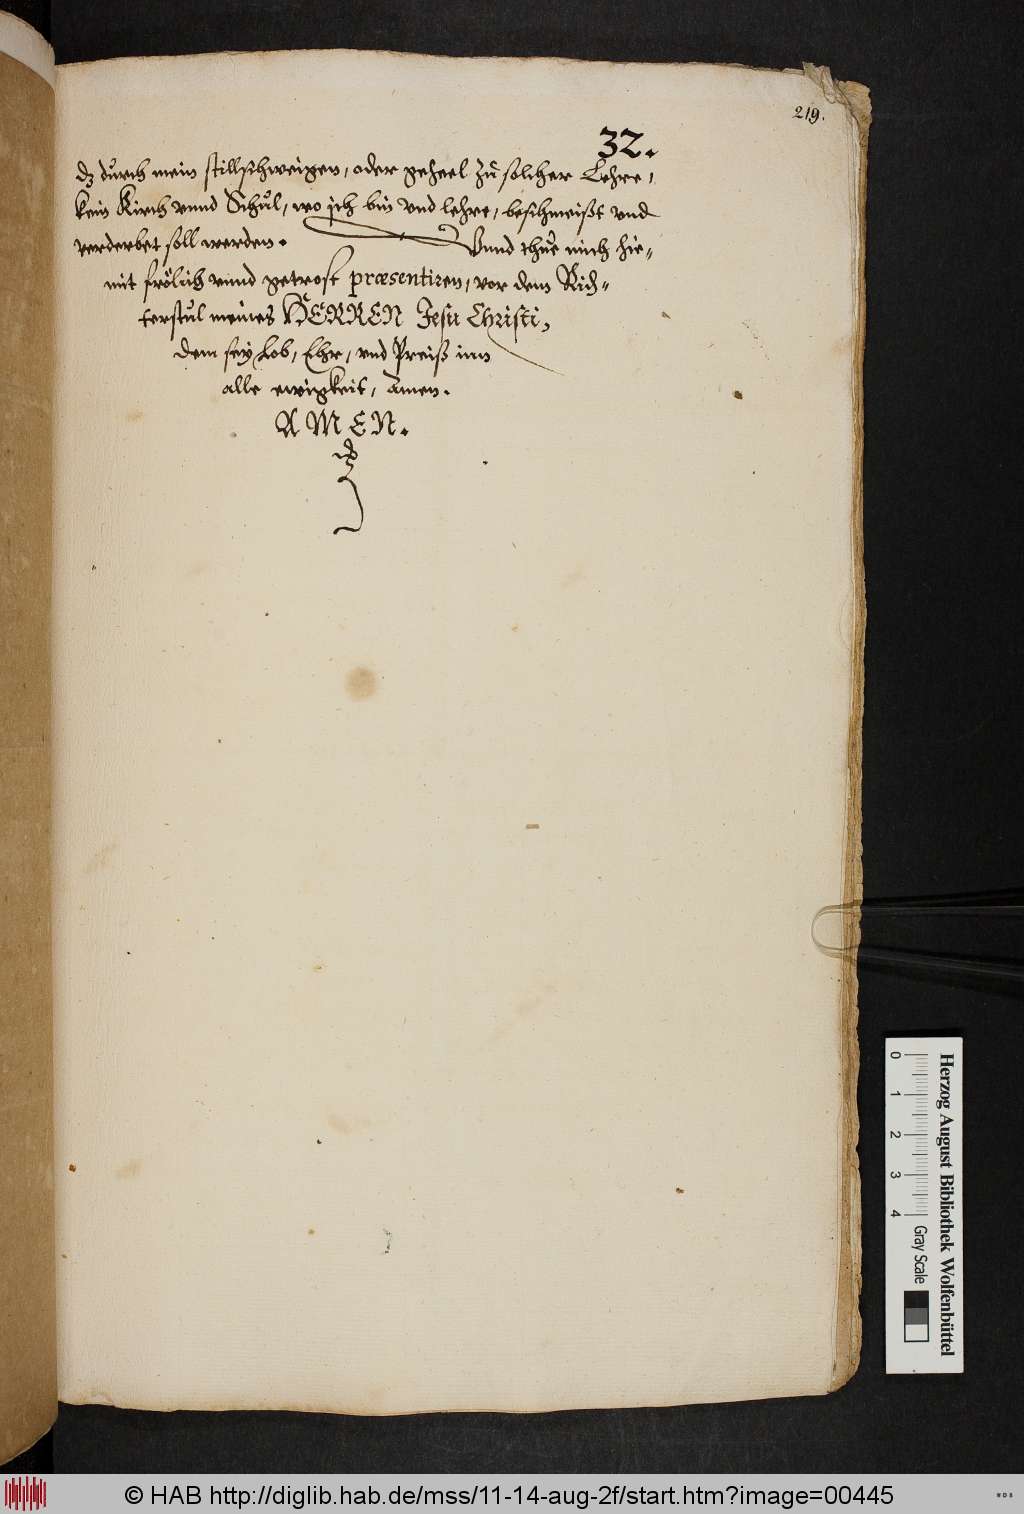 219.
32.
dz durch mein stillschweigen, oder geheel zu solcher Lehre,
kein Kirch vnnd Schul, wo ich bin vnd lehre, beschmeißt vnd
verderbet soll werden. Vnnd thue mich hie-
mit frölich vnnd getrost præsentiren, vor dem Rich-
terstul meines HERREN Jesu Christi,
dem sey Lob, Ehr, vnd Preiß inn
alle ewigkeit, Amen.
AMEN.
Herzog August Bibliothek Wolfenbüttel
0 1 2 3 4 Gray Scale
© HAB http://diglib.hab.de/mss/11-14-aug-2f/start.htm?image=00445